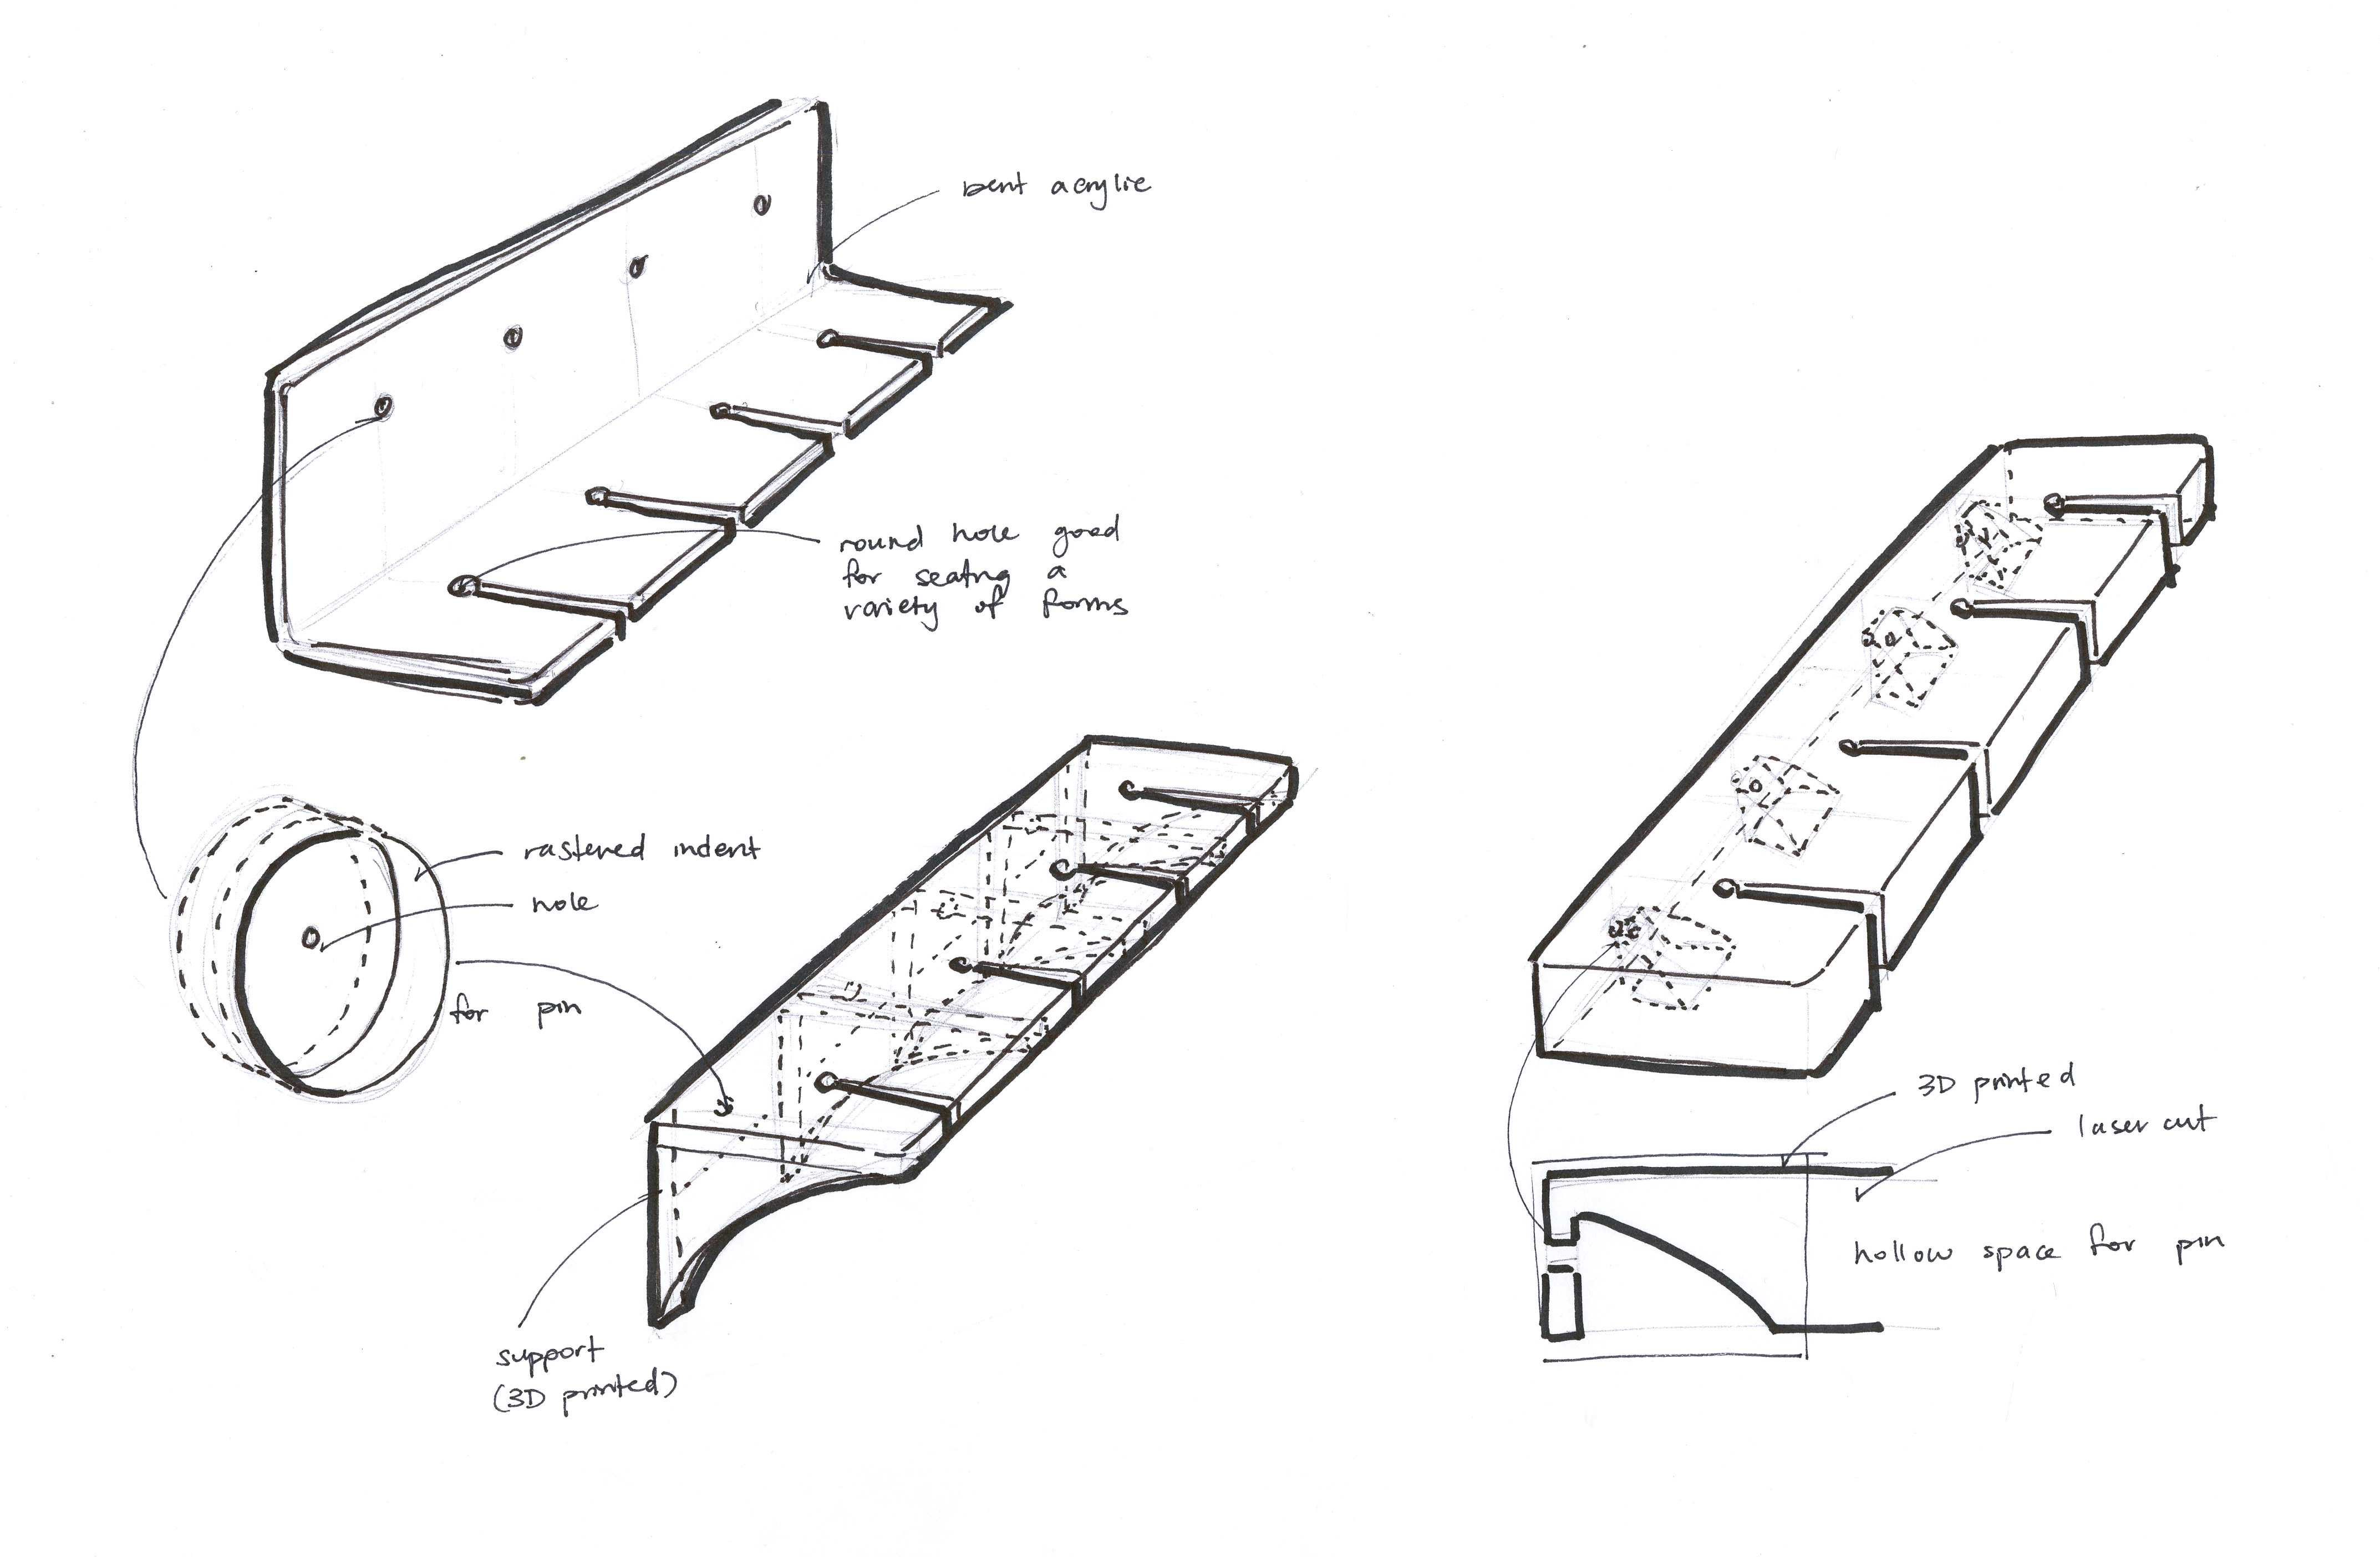 bent acrylic
round hole good
for seatng a
variety of forms
rastered indent
hole
for pin
support
(3D printed)
3D printed
laser cut
hollow space for pin